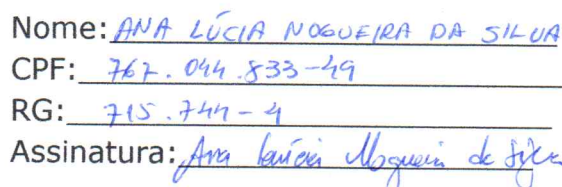 Nome: ANA LÚCIA NOGUEIRA DA SILVA
CPF: 767.044.833-49
RG: 715.744-4
Assinatura: Ana Lúcia Nogueira da Silva